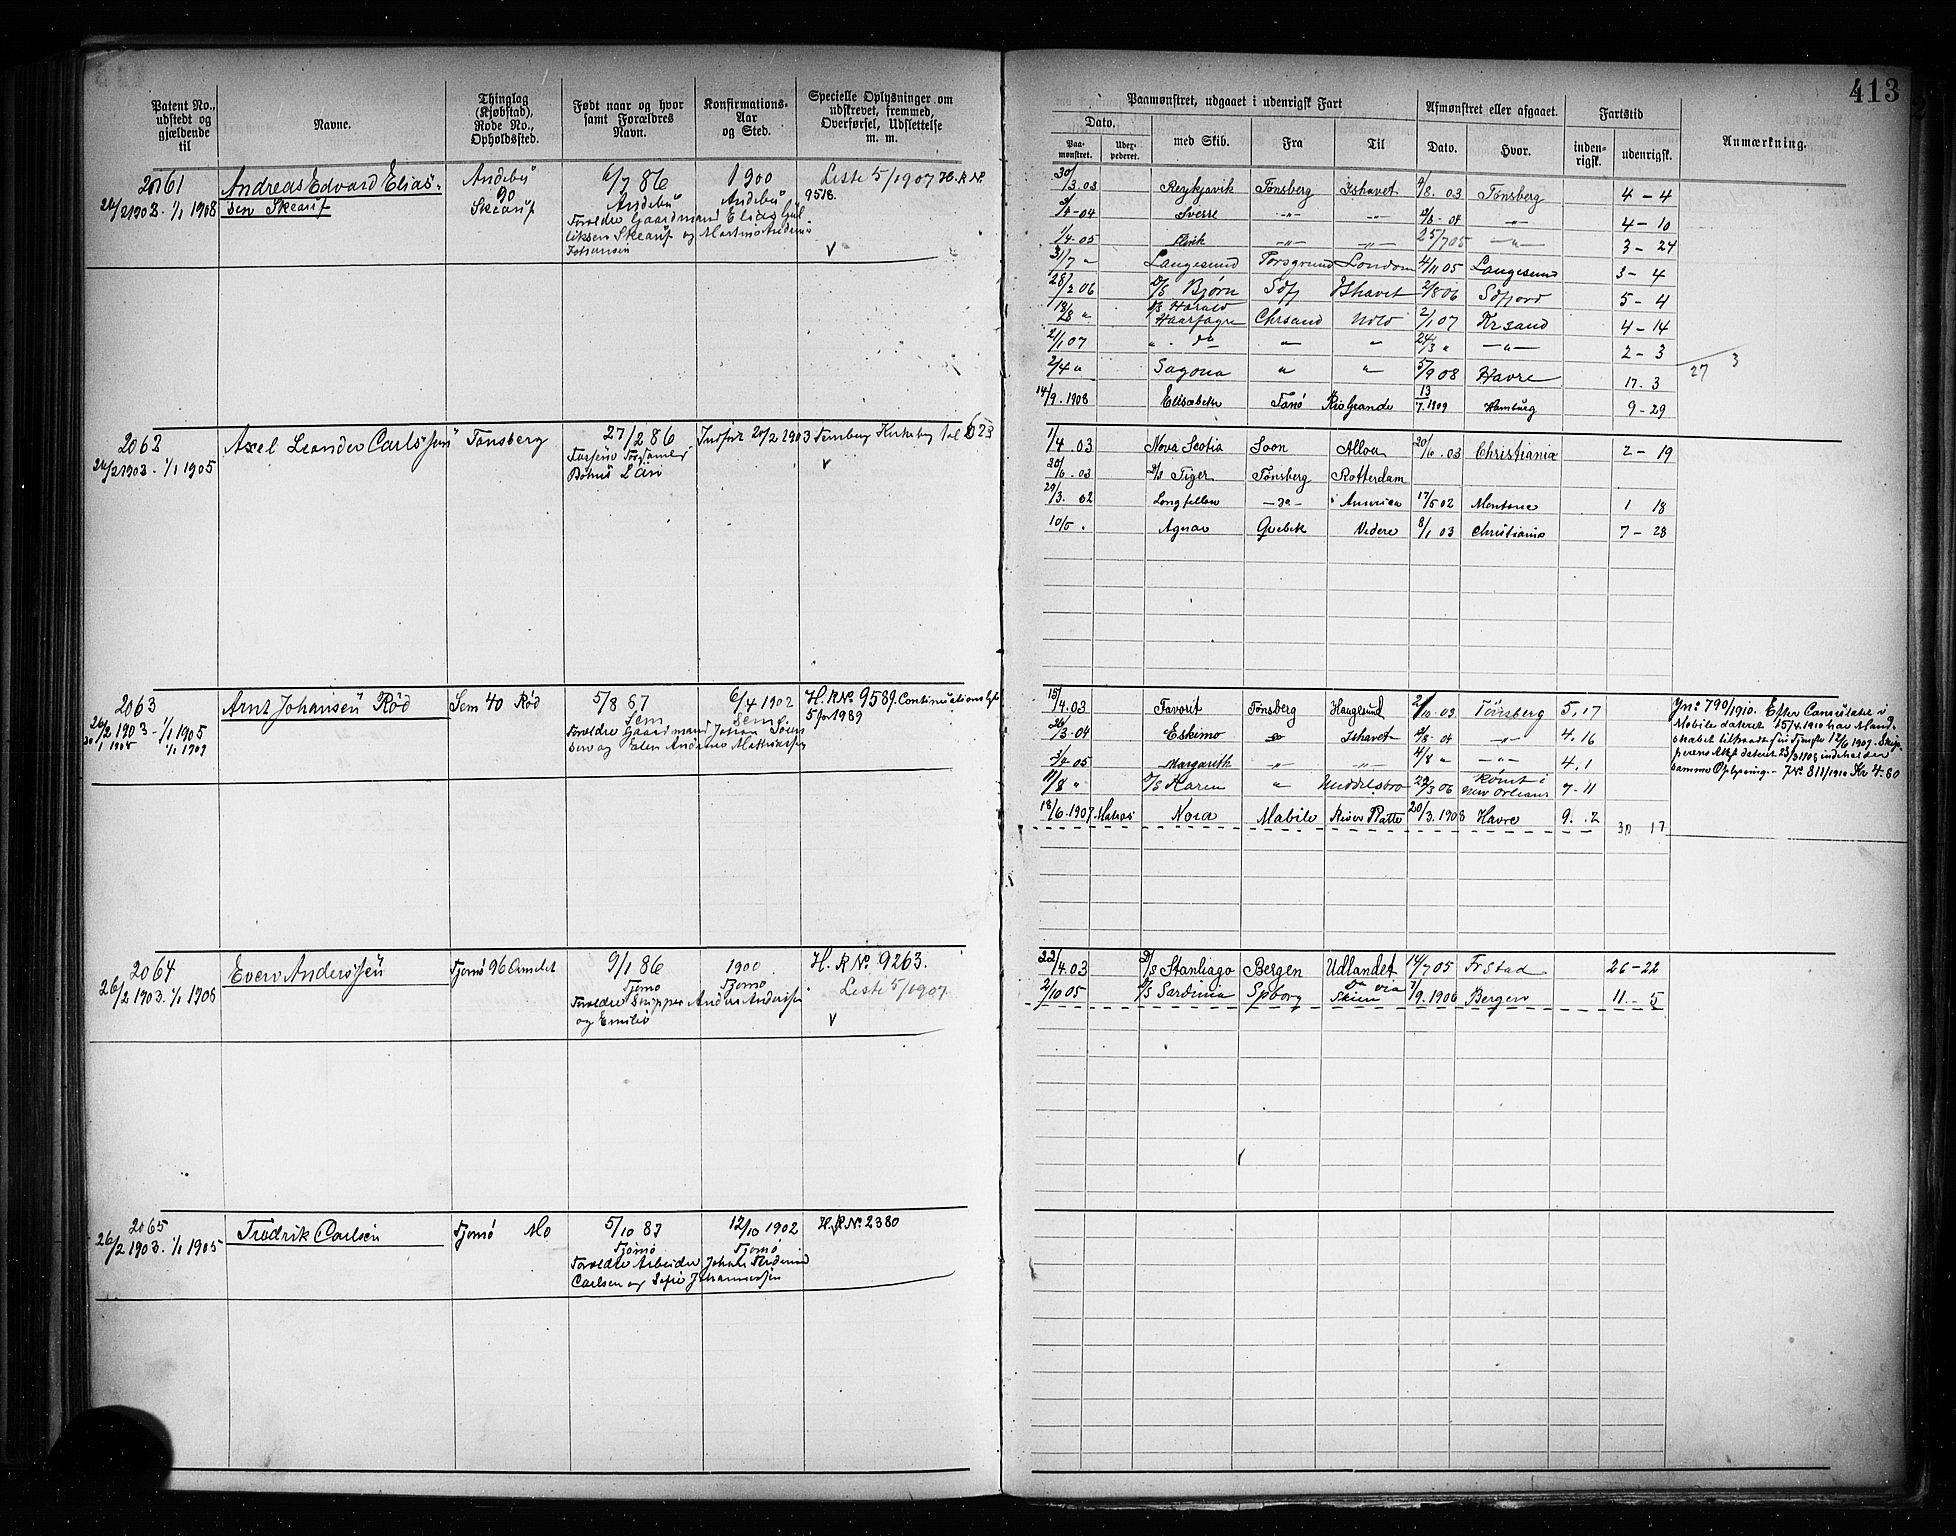 413
Patent No., udstedt og gjældende til
Navne.
Thinglag (Kjøbstad), Rode No., Opholdssted.
Født naar og hvor samt Forældres Navn.
Konfirmations- Aar og Sted.
Specielle Oplysninger om udskrevet, fremmed, Overførsel, Udslettelse m. m.
Paamønstret, udgaaet i udenrigsk Fart
Afmønstret eller afgaaet.
Fartstid
Anmærkning.
Dato.
Paa- mønstret.
med Skib.
Fra
Til
Dato.
Hvor.
inden- rigsk.
udenrigsk.
2061
24/2 1903. 1/1 1908
Andreas Edvard Elias-
sen Skearup
Andebu
90
Skearup
6/7 86
Andebu
Forældre Gaardmand Elias
1900
Andebu
Liste 5/1907 H.R.N.
9518.
V
30/3.03 Reykjavik Tønsberg Ishavet 4/8 03 Tønsberg 4-4
Sverre -"- -"- 04 -"- 4-10
1/4.05 -"- -"- 25/7 05 -"- 3-24
31/7 " Langesund Porsgrund London 4/11 05 Langesund 3-4
28/2 06 D/S Bjørn Sdfj Ishavet 2/8 06 Sdfjord 5-4
Harald
Haarfagre Chrsand Udld 2/1 07 Krsand 4-14
2/1 07 " do " " 24/3 " -"- 2-3
2/4 " Sagona " " 5/9 08 Havre 17.3
27 3
14/9.1908 Elisabeth Fanø Rio Grande 13/7.1909 Hamburg 9-29
2062
24/2 1903. 1/1 1905
Axel Leander Carlssen
Tønsberg
27/2 86
Bohus Län
20/2 1903
V
1/4.03 Nova Scotia Soon Alloa 20/6.03 Christiania 2-19
20/6.03 D/S Tiger Tønsberg Rotterdam
29/3.02 Longfellow -do- America 17/5 02 1 18
10/5 . Agnar Quebek Videre 8/1 03 Christiania 7-28
2063
26/2 1903. 1/1 1905
1/1 1909
Arnt Johansen Rød
Sem 40 Rød
5/8 87
Sem
Forældre Gaardmand Johan
6/4 1902
Sem.
H.R.No. 9589.
15/4.03 Favorit Tønsberg Haugesund 2/10.03 Tønsberg 5.17
3.04 Eskimo do Ishavet 04 -"- 4.16
05 Margareth -"- -"- 4/8 " -"- 4.1
11/8 " Karen " Middelsbro 29/3 06 kømt i
New Orleans 7-11
18/6.1907 Matros Nora Mobile River Platte 20/3.1908 Havre 9..2
30 17
Jno 790/1910. Efter Consulatet i
Mobile dateret 15/4.1910 har Mand-
skabet 12/6 1907.
samme Oplysning. - 7No 811/1910 Kr 4.80
2064
26/2 1903. 1/1 1908
Evers Anderssen
Tjømø 96 Ormelet
9/1 86
Tjømø
Forældre Skipper Anders Anderssen
og Emilie
1900
Tjømø
H. R No. 9263.
Liste 5/1907.
V
22/4.03 D/S Stanliago Bergen Udlandet 14/7 05 FrStad 26-22
2/10 05 D/S Sardinia Spborg Do via
Skien 7/9.1906 Bergen 11.-5
2065
26/2 1903. 1/1 1905
Fredrik Carlsen
Tjømø Mo
5/10 87
Tjømø
Forældre Arbeider Johan
Carlsen og Sofie Johannessen
12/10 1902
Tjømø
H.R No. 2380